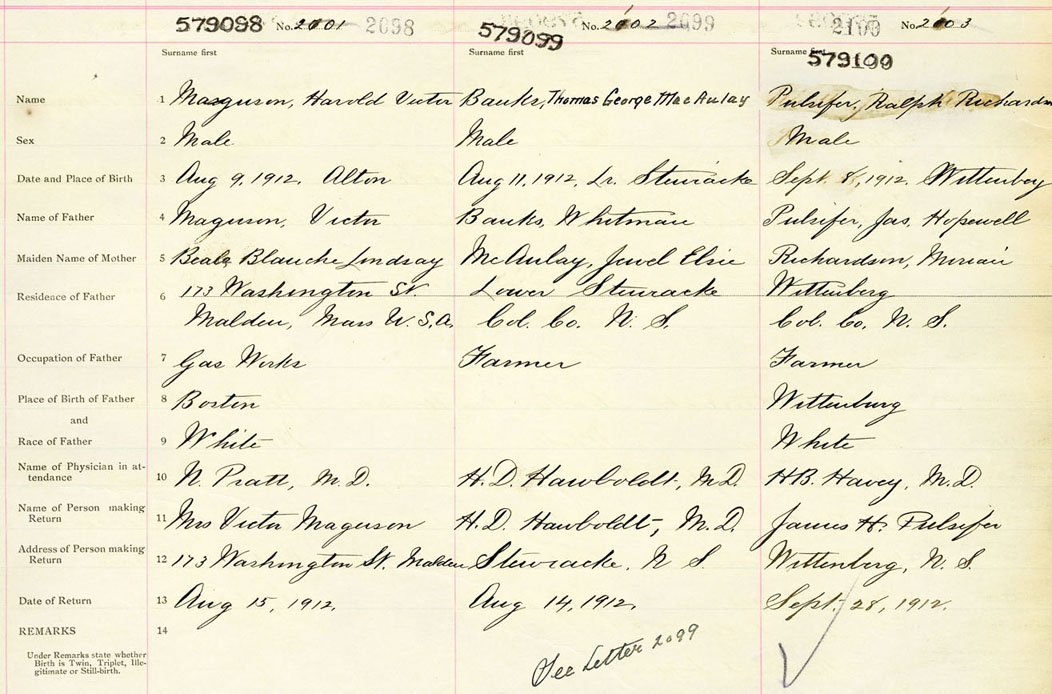 579098 No. 2001 2098 579099 No. 2002 2099 2100 No. 2003
Surname first Surname first Surname first 579100
Name 1 Magnuson, Harold Victor Banks, Thomas George MacAulay Pulsifer, Ralph Richardson
Sex 2 Male Male Male
Date and Place of Birth 3 Aug 9, 1912, Alton Aug 11, 1912, Lr. Stewiacke Sept. 8, 1912, Wittenberg
Name of Father 4 Maguson, Victor Banks, Whitman Pulsifer, Jas. Hopewell
Maiden Name of Mother 5 Beals Blanche Lindsay McAulay, Jewel Elsie Richardson, Miriam
Residence of Father 6 173 Washington St. Lower Stewiacke Wittenberg
Malden, Mass U.S.A. Col. Co. N. S. Col. Co. N. S.
Occupation of Father 7 Gas Works Farmer Farmer
Place of Birth of Father 8 Boston Wittenburg
and
Race of Father 9 White White
Name of Physician in at-
tendance 10 N. Pratt, M.D. H.D. Hawboldt, M.D. H.B. Havey, M.D.
Name of Person making
Return 11 Mrs Victor Maguson H.D. Hawboldt, M.D. James H. Pulsifer
Address of Person making
Return 12 173 Washington St. Malden Stewiacke, N S. Wittenberg, N. S.
Date of Return 13 Aug 15, 1912. Aug 14, 1912. Sept. 28, 1912.
REMARKS 14
Under Remarks state whether
Birth is Twin, Triplet, Ille-
gitimate or Still-birth.
See Letter 2099